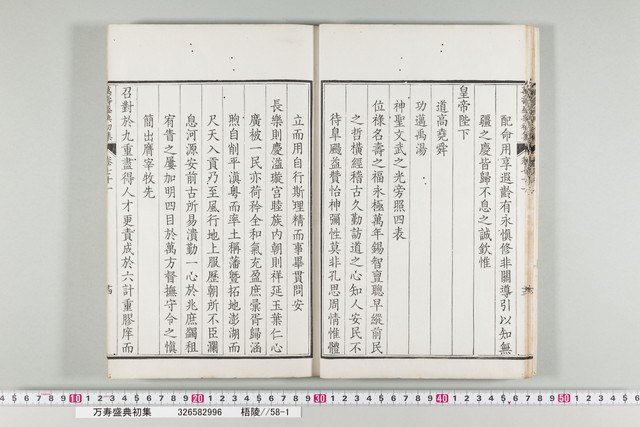 配命用享遐齡有永慎修非關導引以知無
疆之慶皆歸不息之誠欽惟
皇帝陛下
道高堯舜
功邁禹湯
神聖文武之光旁照四表
位祿名壽之福永極萬年錫智亶聰早縱前民
之哲橫經稽古久勤訪道之心知人安民不
待皋颺益贊怡神彌性莫非孔思周情惟體
立而用自行斯理精而事畢貫問安
長樂則慶溢璇宮睦族内朝則祥延玉葉仁心
廣被一民亦荷矜全和氣充盈庶彙胥歸涵
煦自削平滇粤而率土稱藩曁拓地澎湖而
尺天入貢乃至風行地上服歷朝所不臣瀾
息河源安前古所易潰勤一心於兆庶蠲租
宥眚之屢加明四目於萬方督撫守令之愼
簡出膺宰牧先
召對於九重盡得人才更責成於六計重膠庠而
萬壽盛典初集
卷七十一
10 20 30 40 50
万寿盛典初集 326582996 梧陵//58-1